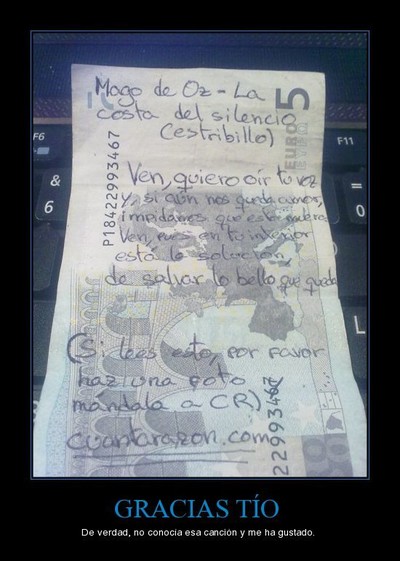 Mago de Oz - La
costa del silencio
(estribillo)
5
EURO
P18422993467
Ven, quiero oír tu voz
y, si aún nos queda amor,
impidamos que esto muera.
Ven, pues en tu interior
está la solución,
de salvar lo bello que queda
(Si lees esto, por favor
haz una foto
mándala a CR)
cuantarazon.com
22993467
F6
F11
&
6
=
0
L
GRACIAS TÍO
De verdad, no conocía esa canción y me ha gustado.